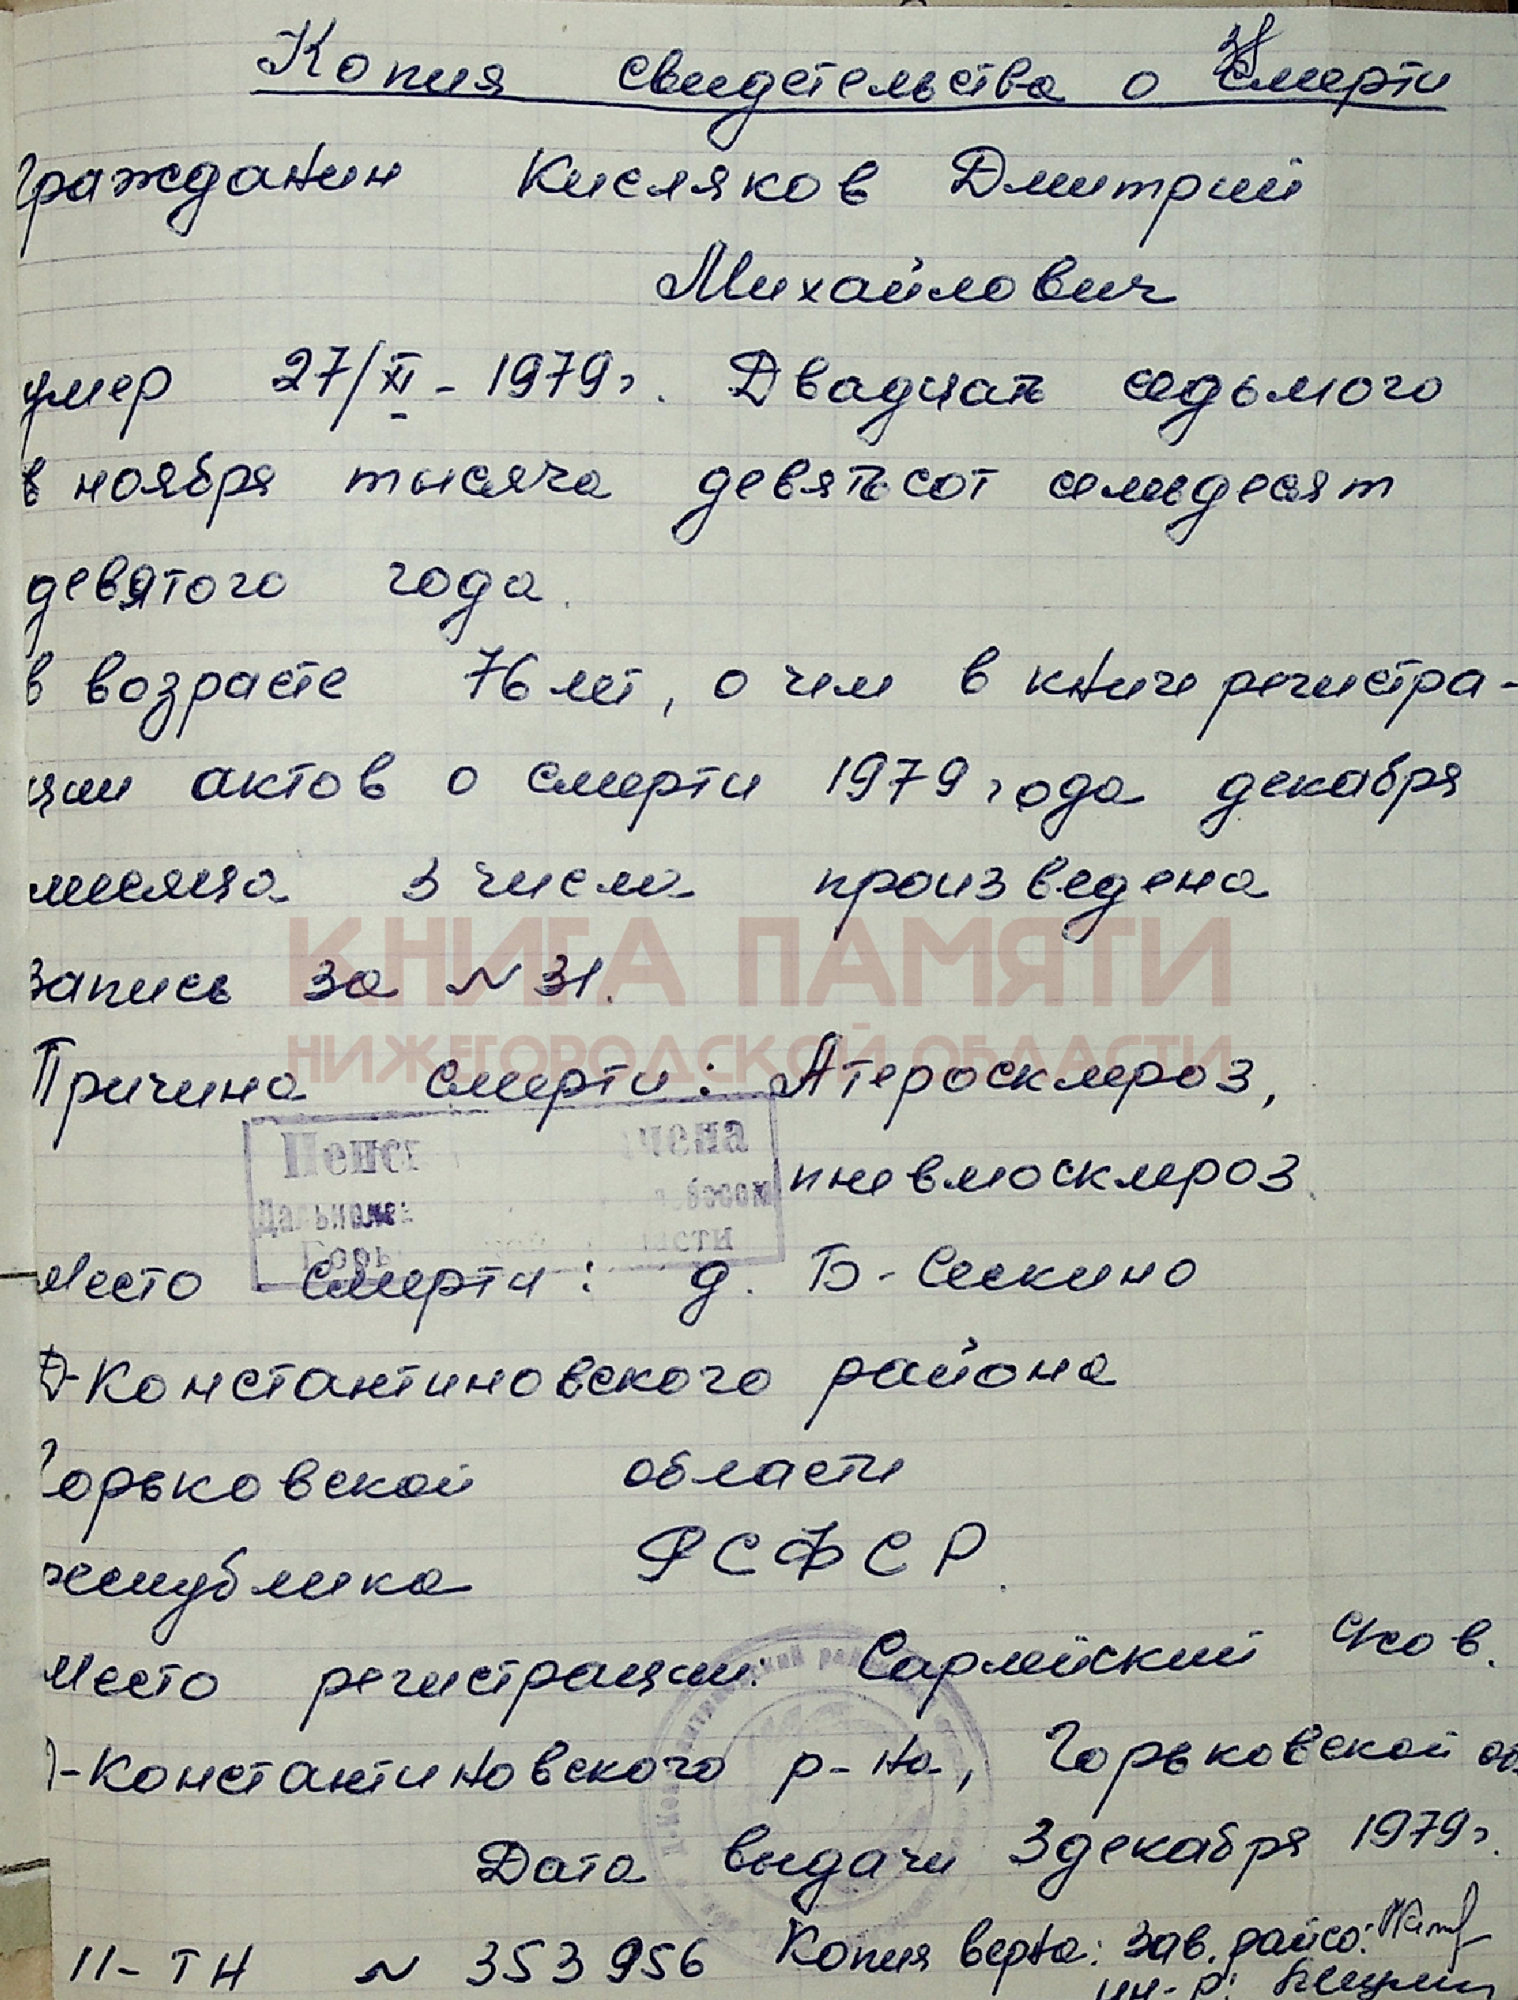 Копия свидетельства о смерти
Гражданин Кисляков Дмитрий
Михайлович
умер 27/XI - 1979 г. Двадцать седьмого
в ноября тысяча девятьсот семьдесят
девятого года.
в возрасте 76 лет, о чем в книге регистра-
ции актов о смерти 1979 года декабря
месяца 3 числа произведена
запись за N 31.
КНИГА ПАМЯТИ
НИЖЕГОРОДСКОЙ ОБЛАСТИ
Причина смерти: Атеросклероз,
пневмосклероз.
Место смерти: д. Б-Сескино
Д-Константиновского района
Горьковской области
республика РСФСР.
Место регистрации: Сарлейский с/сов.
Д-Константиновского р-на, Горьковской об
Дата выдачи 3 декабря 1979 г.
II-ТН N 353956 Копия верна: Зав. райсо:
ин-р: